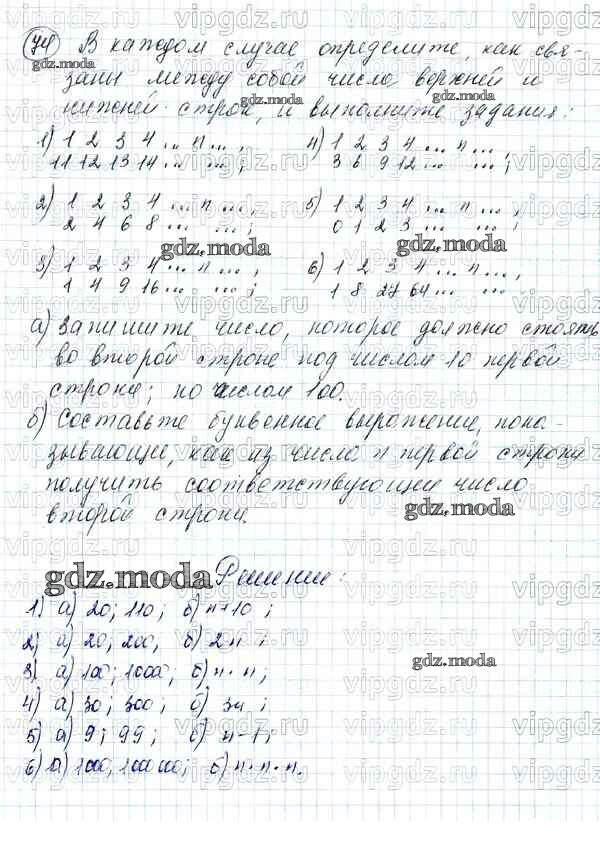 74 В каждом случае определите, как свя-
заны между собой числа верхней и
нижней строк, и выполните задания:
1) 1 2 3 4 ... n ... , 4) 1 2 3 4 ... n ... ,
11 12 13 14 ... ... ; 3 6 9 12 ... ... ;
2) 1 2 3 4 ... n ... , 5) 1 2 3 4 ... n ... ,
2 4 6 8 ... ... ; 0 1 2 3 ... ... ;
3) 1 2 3 4 ... n ... , 6) 1 2 3 4 ... n ... ,
1 4 9 16 ... ... ; 1 8 27 64 ... ... ;
а) Запишите число, которое должно стоять
во второй строке под числом 10 первой
строки; по числом 100.
б) Составьте буквенное выражение, пока-
зывающее, как из числа n первой строки
получить соответствующее число
второй строки.
Решение:
1) а) 20; 110; б) n+10 ;
2) а) 20, 200, б) 2n ;
3) а) 100; 1000, б) n·n;
4) а) 30; 300; б) 3n ;
5) а) 9; 99; б) n-1;
6) а) 1000, б) n·n·n.
gdz.moda
vipgdz.ru